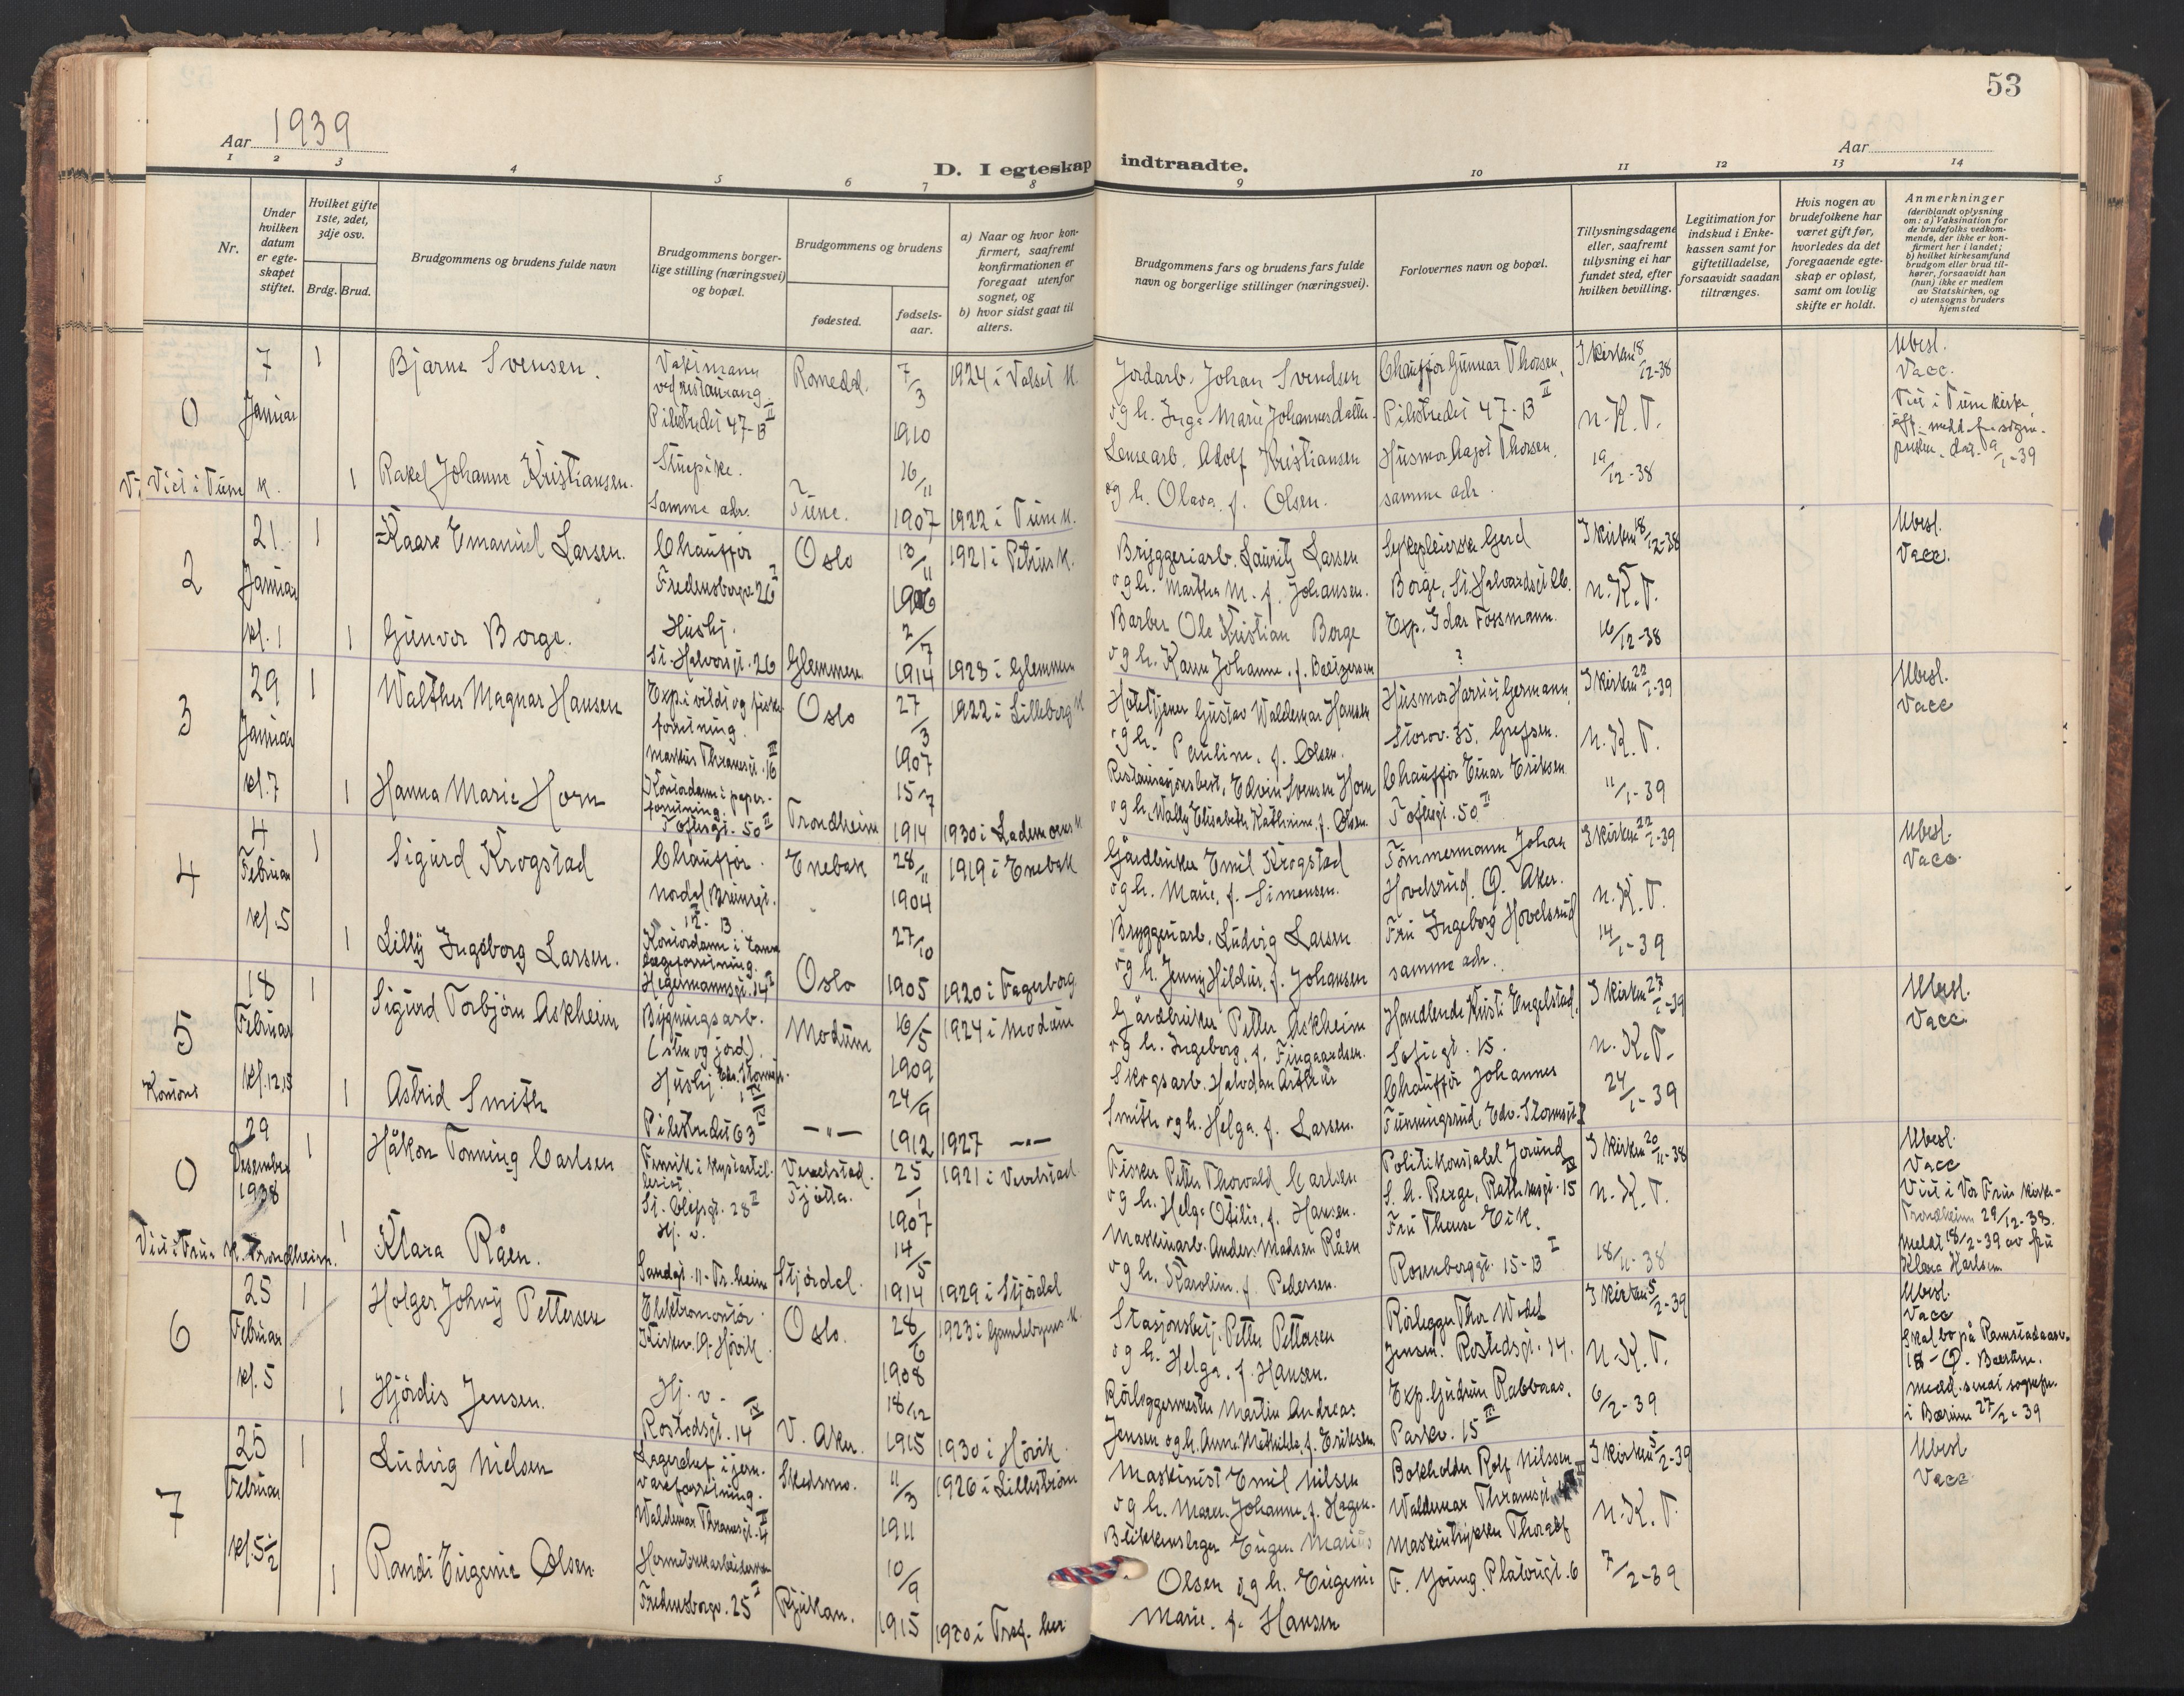 53
Aar 1939
Aar
D. I egteskap indtraadte.
1 2 3 4 5 6 7 8 9 10 11 12 13 14
Nr.
Under hvilken datum er egte-skapet stiftet.
Hvilket gifte 1ste, 2det, 3dje osv.
Brdg. Brud.
Brudgommens og brudens fulde navn
Brudgommens borger-lige stilling (næringsvei) og bopæl.
Brudgommens og brudens
fødested.
fødsels-aar.
a) Naar og hvor kon-firmert, saafremt konfirmationen er foregaat utenfor sognet, og
b) hvor sidst gaat til alters.
Brudgommens fars og brudens fars fulde navn og borgerlige stillinger (næringsvei).
Forlovernes navn og bopæl.
Tillysningsdagene eller, saafremt tillysning ei har fundet sted, efter hvilken bevilling.
Legitimation for indskud i Enke-kassen samt for giftetilladelse, forsaavidt saadan tiltrænges.
Hvis nogen av brudefolkene har været gift før, hvorledes da det foregaaende egte-skap er opløst, samt om lovlig skifte er holdt.
Anmerkninger
(deriblandt oplysning om: a) Vaksination for de brudefolks vedkom-mende, der ikke er kon-firmert her i landet; b) hvilket kirkesamfund brudgom eller brud til-hører, forsaavidt han (hun) ikke er medlem av Statskirken, og c) utensogns bruders hjemsted
0
7 Januar
Viet i Tune K.
1
Bjarne Svensen.
Vaktmann
ved restaurang.
Pilestredet 47-B II
Romedal.
7/3
1910
1924 i Valset K.
Jordarb. Johan Svendsen
og h. Inga Marie Johannesdatter.
Chauffør Gunnar Thorsen,
Pilestredet 47-B II
I kirken 18/12-38
n. K. T.
19/12-38
Ubesl.
Vacc.
Viet i Tune kirke
1
Rakel Johanne Kristiansen.
Stuepike.
Samme adr.
Tune.
16/11
1907
1922 i Tune K.
Lensearb. Adolf Kristiansen
og h. Olava f. Olsen.
Husmor Aagot Thorsen.
samme adr.
2
21. Januar
kl. 1
1
Kaare Emanuel Larsen.
Chauffør
Fredensborgv. 26
Oslo
13/11
1906
1921 i Petrus K.
Bryggeriarb. Lauritz Larsen
og h. Martha M. f. Johansen.
Sykepleierske Gerd
Borge, St. Halvardsgt.
I kirken 18/12-38
n. K. T.
16/12-38
Ubesl.
Vacc.
1
Gunvor Borge.
Hushj.
St. Halvorsgt. 26
Glemmen
2/7
1914
1928 i Glemmen
Barber Ole Kristian Borge
og h. Karen Johanne. f.
Exp. Idar Fossmann.
?
3
29 Januar
kl. 7
1
Walther Magnar Hansen
Exp. i vildt og fiske
forretning.
Markus Thranesgt. 16 III
Oslo
27/3
1907
1922 i Lilleborg K
Hotelltjener Gustav Waldemar Hansen
og h. Pauline. f. Olsen.
Husmor Harriet Germann
Storov. 35, Grefsen.
I kirken 22/1-39
n. K. T.
11/1-39
Ubesl.
Vacc
1
Hanna Marie Horn
Kontordame i papir-
forretning.
Toftesgt. 50 II
Trondheim
15/7
1914
1930 i Lademoens K
Restaurasjonsbest. Edvin Svensen Horn
og h. Wally Elisabeth Kathinine, f. Olsen.
Chauffør Einar Eriksen
Toftesgt. 50 II
4
4 Februar
kl. 5
1
Sigurd Krogstad
Chauffør.
Nordal Brunsgt.
12 - B
Enebak
28/11
1904
1919 i Enebak
Gårdbruker Emil Krogstad
og h. Marie, f. Simensen.
Tømmermann Johan
Hovelsrud Ø. Aker.
I kirken 22/1-39
n. K. T.
14/1-39
Ubesl.
Vacc.
1
Lilly Ingeborg Larsen.
Kontordame i
Hegermannsgt. 14 I
Oslo
27/10
1905
1920 i Fagerborg
Bryggeriarb. Ludvig Larsen
og h. Jenny Hildur, f. Johansen
Fru Ingeborg Hovelsrud
samme adr.
5
Kontoret
18 Februar
kl. 12,15
1
Sigurd Torbjørn Askheim
Bygningsarb.
(sten og jord).
Modum
16/5
1909
1924 i Modum
Gårdbruker Petter Askheim
og h. Ingeborg. f. Fingaardsen.
Handlende Kirsti Engelstad.
Sofiegt. 15.
I kirken 27/1-39
n. K. T.
24/1-39
Ubesl.
Vacc.
1
Astrid Smith
Hushj.
Pilestredet 63 IV
—"—
24/9
1912
1927 —"—
Skogsarb. Halvdan Arthur
Smith og h. Helga. f. Larsen.
Chauffør Johannes
Funningsrud, Edv. Stormsgt.
0
29 Desember 1938
Viet i Frue K. Trondheim.
1
Håkon Tonning Carlsen
Fenrik i kystartil-
leriet
St. Olafsgt. 28 II
Vevelstad.
Tjøtta.
25/1
1907
1921 i Vevelstad
Fisker Petter Thorvald Carlsen
og h. Helga Otilie, f. Hansen.
Politikonstabel Jørund
S. h. Berge, Rathkesgt. 15
I kirken 20/11-38
n. K. T.
18/11-38
Ubesl.
Vacc
Viet i Vor Frue kirke-
Trondheim 29/12-38.
Meldt 18/2-39 av fru
Klara Karlsen.
1
Klara Råen.
Hj. v.
Sandgt. 11-Tr. heim
Stjørdal.
14/5
1914
1929 i Stjørdal
Maskinarb. Anders Madsen Råen
og h. Karoline. f. Pedersen.
Fru Therese Eik.
Rosenborggt. 15-B I
6
25 Februar
kl. 5
1
Holger Johny Pettersen
Elektromontør.
Kirkev. 19-Høvik
Oslo.
28/6
1908
1923 i Gamlebyens K.
Stasjonsbetj. Petter Pettersen
og h. Helga. f. Hansen.
Rørlegger Thor Wedel
Jensen. Rostedsgt. 14.
I kirken 5/2-39
n. K. T.
6/2-39
Ubesl.
Vacc
Skal bo på Ramstadaasv.
18 - Ø. Bærum.
Medd. sendt sognepr.
i Bærum 27/2-39
1
Hjørdis Jensen.
Hj. v.
Rostedsgt. 14 IV
V. Aker.
18/12
1915
1930 i Høvik.
Rørleggermester Martin Andreas
Jensen og h. Anna Mathilde, f. Eriksen
Exp. Gudrun Rabbaas.
Parkv. 15 III
7
25 Februar
kl. 5 1/2
1
Ludvig Nielsen
Lagerchef i jern-
vareforretning.
Waldemar Thranesgt. 4 II
Skedsmo.
11/3
1911
1926 i Lillestrøm
Maskinist Emil Nilsen
og h. Maren Johanne, f. Hagen.
Bokholder Rolf Nilssen
Waldemar Thranesgt.
I kirken 5/2-39
n. K. T.
7/2-39
Ubesl
Vacc
1
Randi Eugenie Olsen
Hermetikkarbeiderske
Fredensborgv. 25 I
Rjukan.
10/9
1915
1930 i Tref. her
Blikkenslager Eugen Marius
Olsen og h. Eugenie
Marie. f. Hansen
Maskintrykker Thoralf
F. Young. Platougt. 6